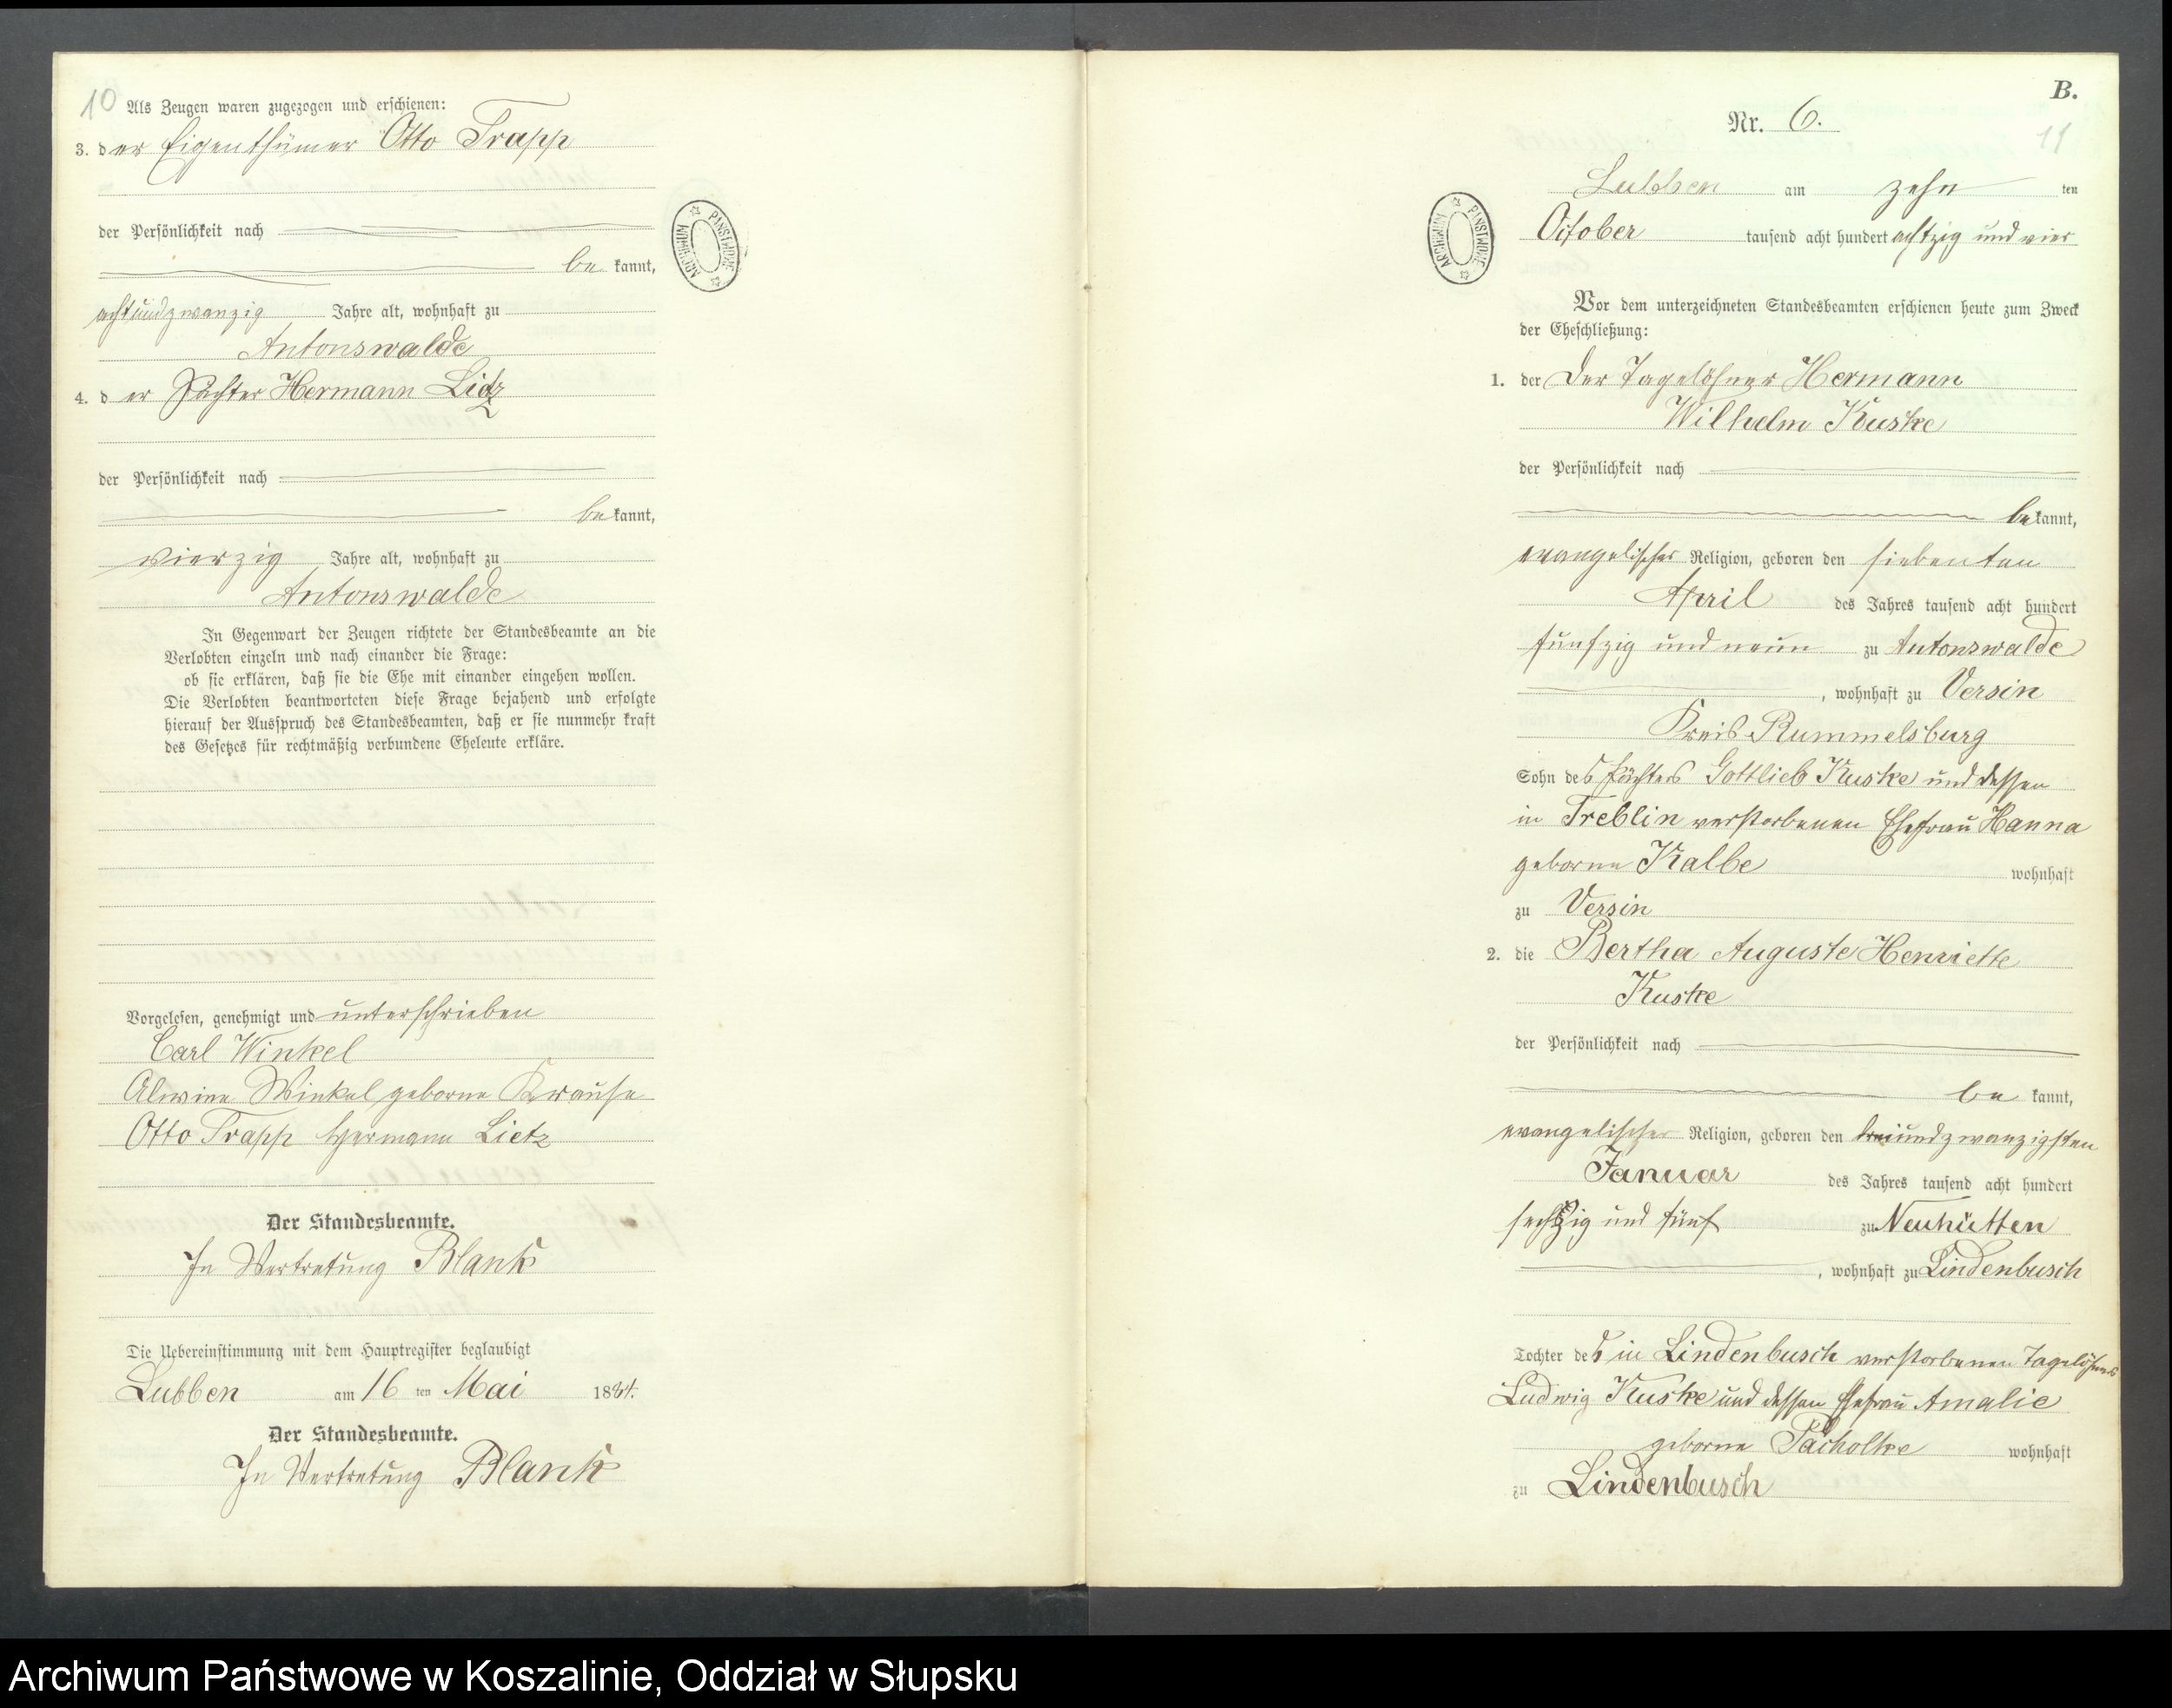 10
Als Zeugen waren zugezogen und erschienen:
3. der Eigenthümer Otto Trapp
der Persönlichkeit nach
be kannt,
achtundzwanzig Jahre alt, wohnhaft zu
Antonswalde
4. der Pächter Hermann Lidz
der Persönlichkeit nach
bekannt,
vierzig Jahre alt, wohnhaft zu
Antonswalde
In Gegenwart der Zeugen richtete der Standesbeamte an die
Verlobten einzeln und nach einander die Frage:
ob sie erklären, daß sie die Ehe mit einander eingehen wollen.
Die Verlobten beantworteten diese Frage bejahend und erfolgte
hierauf der Ausspruch des Standesbeamten, daß er sie nunmehr kraft
des Gesetzes für rechtmäßig verbundene Eheleute erkläre.
Vorgelesen, genehmigt und unterschrieben
Carl Winkel
Alwine Winkel geborne Krause
Otto Trapp Hermann Lietz
Der Standesbeamte.
In Vertretung Blank
Die Uebereinstimmung mit dem Hauptregister beglaubigt
Lubben am 16 ten Mai 1884.
Der Standesbeamte.
In Vertretung Blank
ARCHIWUM PAŃSTWOWE
B.
Nr. 6.
11
Lubben am zehn ten
October tausend acht hundert achtzig und vier
ARCHIWUM PAŃSTWOWE
Vor dem unterzeichneten Standesbeamten erschienen heute zum Zweck
der Eheschließung:
1. der Der Tagelöhner Hermann
Wilhelm Kuske
der Persönlichkeit nach
bekannt,
evangelischer Religion, geboren den siebenten
April des Jahres tausend acht hundert
fünfzig und neun zu Antonswalde
, wohnhaft zu Versin
Kreis Rummelsburg
Sohn des Pächters Gottlieb Kuske und dessen
in Treblin verstorbenen Ehefrau Hanna
geborne Kalbe wohnhaft
zu Versin
2. die Bertha Auguste Henriette
Kuske
der Persönlichkeit nach
be kannt,
evangelischer Religion, geboren den dreiundzwanzigsten
Januar des Jahres tausend acht hundert
sechszig und fünf zu Neuhütten
, wohnhaft zu Lindenbusch
Tochter des in Lindenbusch verstorbenen Tagelöhners
Ludwig Kuske und dessen Ehefrau Amalie
geborne Pacholke wohnhaft
zu Lindenbusch
Archiwum Państwowe w Koszalinie, Oddział w Słupsku